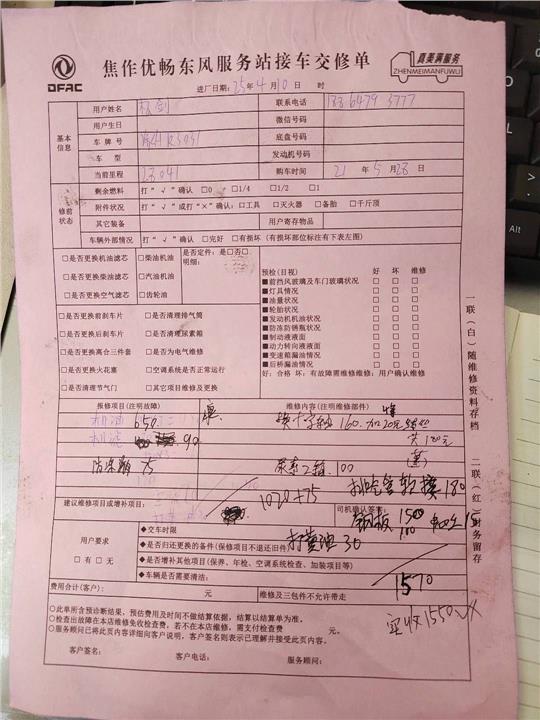 DFAC
焦作优畅东风服务站接车交修单
真美满服务
ZHENMEIMANFUWU
进厂日期: 25年4月10日 时
基本信息
用户姓名
联系电话
用户生日
微信号码
车牌号
底盘号码
车型
发动机号码
当前里程 23041
购车时间 21年5月28日
修前状态
剩余燃料 打“√”确认 □0 □1/4 □1/2 □1
附件状况 打“√”或打“×”确认: □工具 □灭火器 □备胎 □千斤顶
其它装备
用户寄存物品
车辆外部情况 打“√”确认 □完好 □有损坏(有损坏部位标注有下表左图)
□是否更换机油滤芯 □柴油机油 是否定件: 是□否□
明细:
□是否更换柴油滤芯 □汽油机油
□是否更换空气滤芯 □齿轮油
□是否更换前刹车片 □是否清理排气筒
□是否更换后刹车片 □是否清理尿素箱
□是否更换离合三件套 □是否为电气维修
□是否更换火花塞 □空调系统是否正常运行
□是否清理节气门 □其它项目维修及更换
预检(目视) 好 坏 维修
■前挡风玻璃及车门玻璃状况 □ □ □
■灯具情况 □ □ □
■油量状况 □ □ □
■轮胎状况 □ □ □
■发动机机油状况 □ □ □
■防冻防锈瓶状况 □ □ □
■制动液液面 □ □ □
■动力转向液液面 □ □ □
■变速箱漏油情况 □ □ □
■后桥漏油情况 □ □ □
好: 合格 坏: 有故障需维修维修: 用户确认维修
一联(白)随维修资料存档
二联(红)财务留存
报修项目(注明故障)
维修内容(注明维修部件)
机油 650
换十字轴 160. 加20元
共180元
机滤 90
75
尿素2箱. 100
180
1020+75
建议维修项目或增补项目:
司机确认签字:
钢板 150
用户要求
□有 □无
◆交车时限
打黄油 30
◆是否归还更换的备件(保修项目不退还旧件)
◆是否增补其他项目(保养、年检、空调系统检查、加装项目等)
◆车辆是否需要清洁:
1570
费用合计(客户): 元
维修及三包件不允许带走
实收1550
○此单所含预诊断结果、预估费用及时间不做结算依据,结算以结算单为准。
○检查出故障在本店维修免收检查费,若不在本店维修、需支付检查费 元。
○服务顾问已将此页内容详细向客户说明,客户签名则表示已理解并接受此页内容。
客户签名:
客户电话:
服务顾问:
Alt